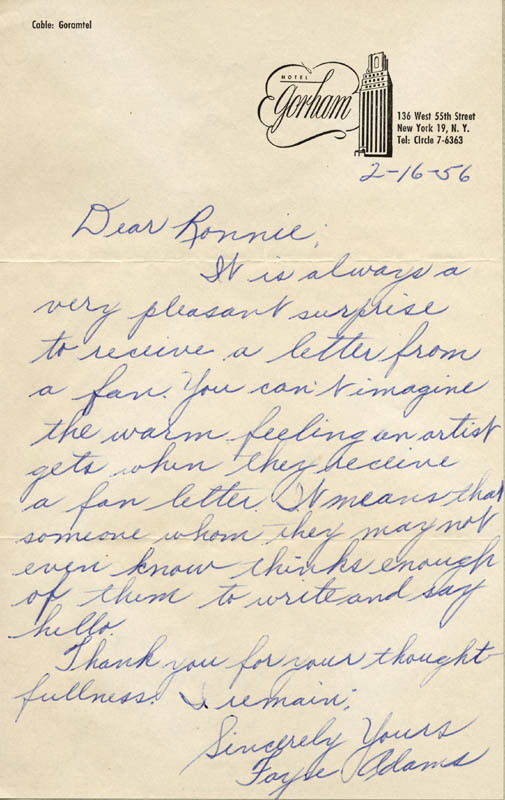 Cable: Goramtel
HOTEL
Gorham
136 West 55th Street
New York 19, N. Y.
Tel: Circle 7-6363
2-16-56
Dear Ronnie;
It is always a
very pleasant surprise
to receive a letter from
a fan. You can't imagine
the warm feeling an artist
gets when they receive
a fan letter. It means that
someone whom they may not
even know thinks enough
of them to write and say
hello.
Thank you for your thought-
fullness. I remain;
Sincerely Yours
Faye Adams